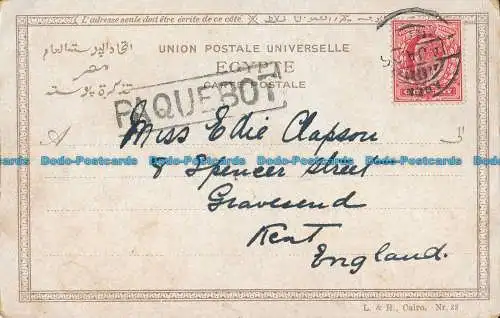 L'adresse seule doit être écrite de ce côté.
UNION POSTALE UNIVERSELLE
EGYPTE
CARTE POSTALE
اتحاد البوسته العام
مصر
تذكرة بوسته
PAQUEBOT
A
Miss Edie Clapson
8 Spencer Street
Gravesend
Kent
England.
Dodo-Postcards Dodo-Postcards Dodo-Postcards Dodo-Postcards
L. & H., Cairo. Nr. 22